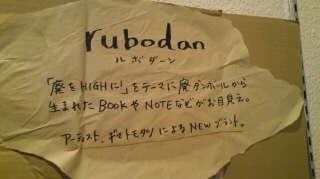 rubodan
ルボダーン
「廃をHIGHに!」をテーマに廃ダンボールから
生まれたBOOKやNOTEなどがお目見え。
アーティスト、ギマトモタツによるNEWブランド。